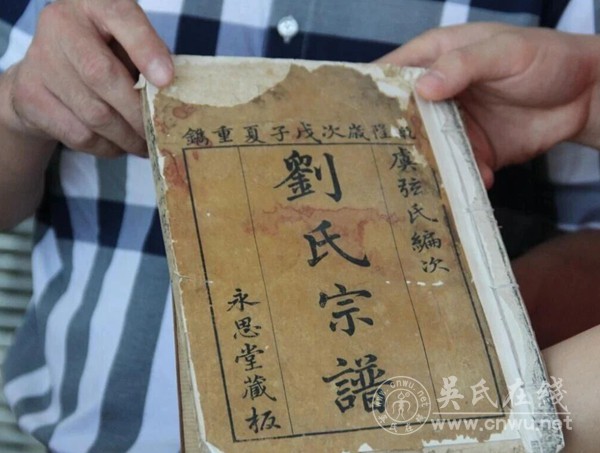 乾隆歲次戊子夏重鐫
虞弦氏編次
劉氏宗譜
永思堂藏板
吴氏在线
www.cnwu.net